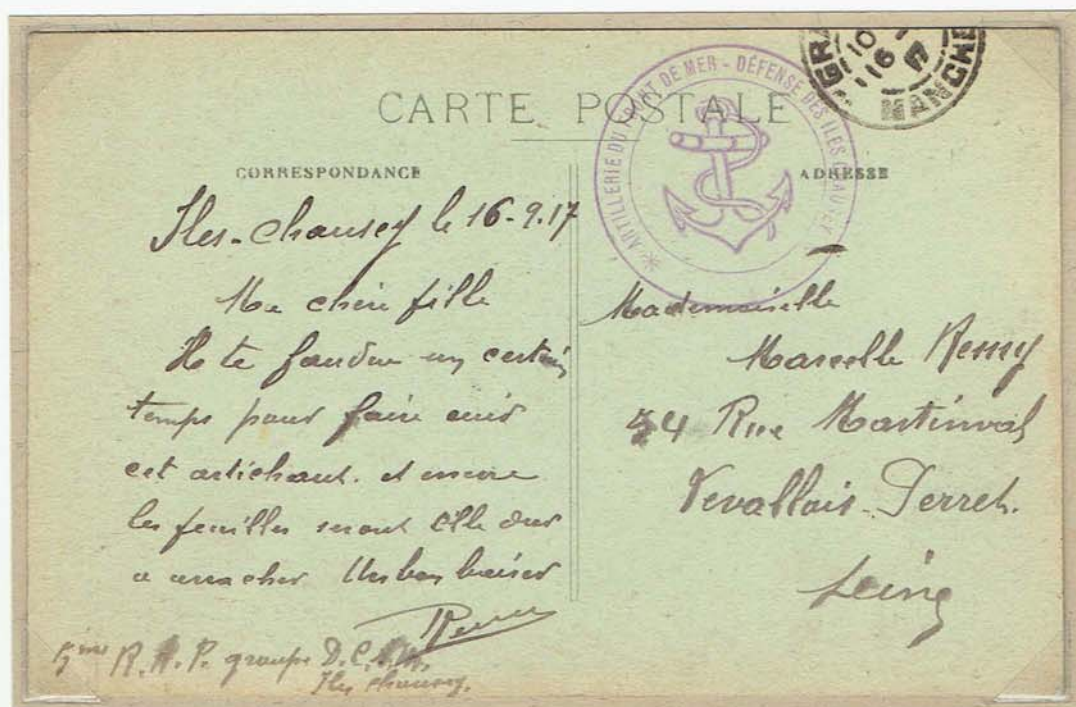 CARTE POSTALE
CORRESPONDANCE
ADRESSE
ARTILLERIE DU FRONT DE MER - DÉFENSE DES ILES CHAUSEY
GRA
10
16 -
17
MANCHE
Iles-Chausey le 16-9.17
Ma chère fille
Il te faudra un certain
temps pour faire cuir
cet artichaut. et encore
les feuilles seront elle dur
a arracher Un bon baiser
Remy
5ème R.A.P. groupe D.C.
Iles chausey.
Mademoiselle
Marcelle Remy
34 Rue Martinval
Levallois-Perret.
Seine